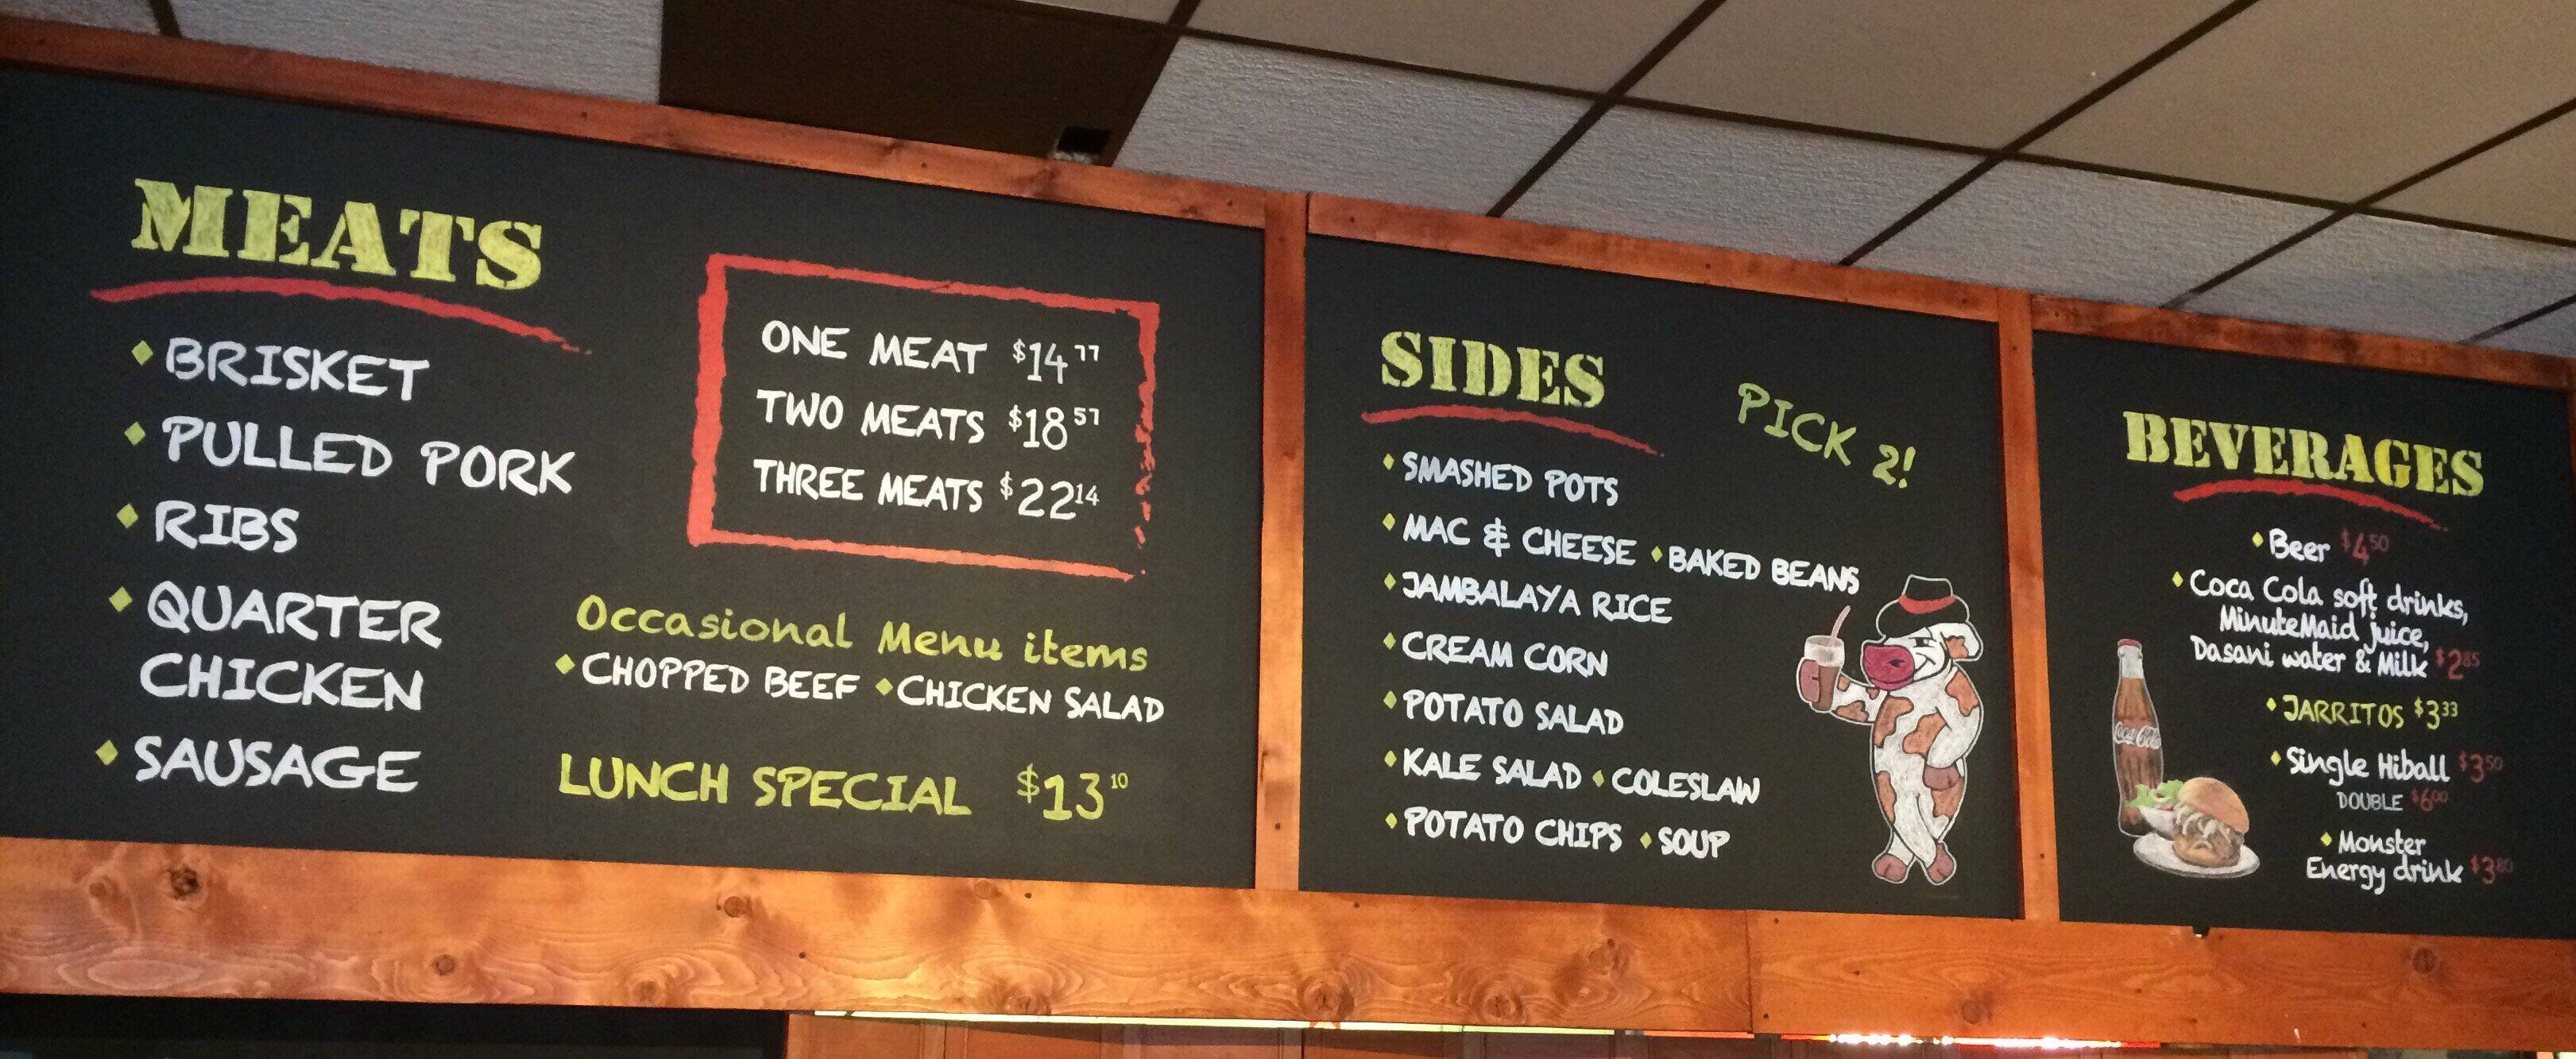 MEATS
BRISKET
PULLED PORK
RIBS
QUARTER
CHICKEN
SAUSAGE
ONE MEAT $14 77
TWO MEATS $18 57
THREE MEATS $22 14
Occasional Menu items
CHOPPED BEEF CHICKEN SALAD
LUNCH SPECIAL $13 10
SIDES
PICK 2!
SMASHED POTS
MAC & CHEESE BAKED BEANS
JAMBALAYA RICE
CREAM CORN
POTATO SALAD
KALE SALAD COLESLAW
POTATO CHIPS SOUP
BEVERAGES
Beer $4 50
Coca Cola soft drinks,
MinuteMaid juice,
Dasani water & Milk $2 85
JARRITOS $3 33
Single Hiball $3 50
DOUBLE $6 00
Monster
Energy drink $3 80
Coca-Cola